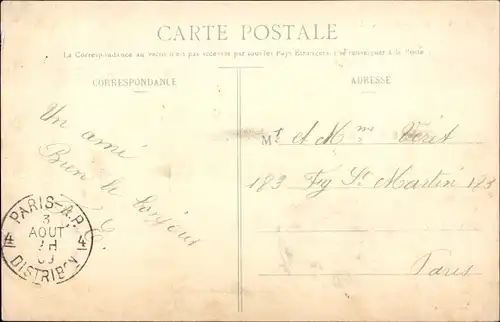 CARTE POSTALE
La Correspondance au recto n'est pas acceptée par tous les Pays Etrangers. (Se renseigner à la Poste)
CORRESPONDANCE
ADRESSE
Un ami
Bien le
Mr et Mme Véret
183 Fg St Martin 183
Paris
PARIS-A.P.
4 4
3
AOUT
DISTRIBON